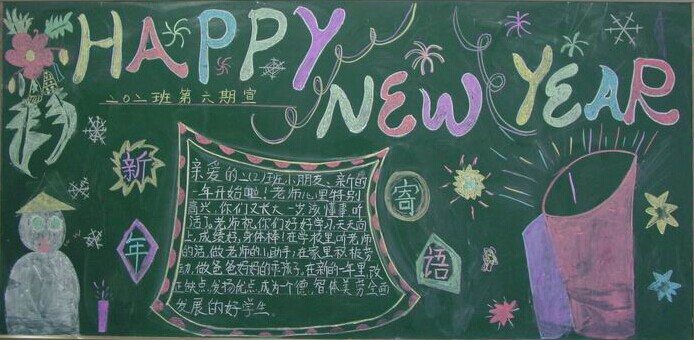 HAPPY
NEW YEAR
二〇二班第六期宣
新
年
寄
语
亲爱的二〇二班小朋友、新的
一年开始啦！老师心里特别
高兴，你们又长大一岁该懂事听
话了。老师祝你们好好学习天天向
上，成绩好，身体棒！在学校里听老师
的话，做老师的小助手；在家里积极劳
动，做爸爸妈妈的乖孩子，在新的一年里，改
正缺点，发扬优点，成为一个德，智体美劳全面
发展的好学生。